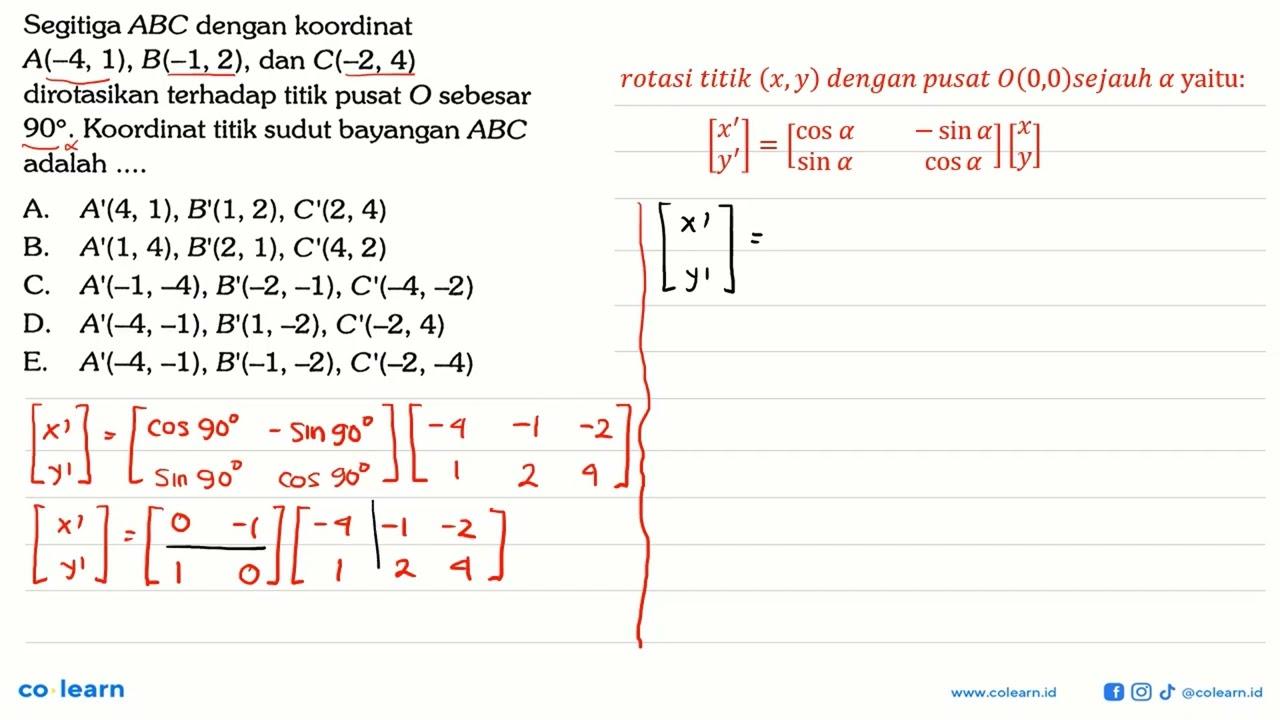 Segitiga ABC dengan koordinat
A(–4, 1), B(–1, 2), dan C(–2, 4)
dirotasikan terhadap titik pusat O sebesar
90°. Koordinat titik sudut bayangan ABC
α
adalah ....
A. A'(4, 1), B'(1, 2), C'(2, 4)
B. A'(1, 4), B'(2, 1), C'(4, 2)
C. A'(–1, –4), B'(–2, –1), C'(–4, –2)
D. A'(–4, –1), B'(1, –2), C'(–2, 4)
E. A'(–4, –1), B'(–1, –2), C'(–2, –4)
[x'] = [cos 90° - sin 90°] [-4 -1 -2]
[y'] [sin 90° cos 90°] [1 2 4]
[x'] = [0 -1] [-4 -1 -2]
[y'] [1 0] [1 2 4]
rotasi titik (x, y) dengan pusat O(0,0)sejauh α yaitu:
[x'] = [cos α − sin α] [x]
[y'] [sin α cos α] [y]
[x'] =
[y']
co learn
www.colearn.id
@colearn.id